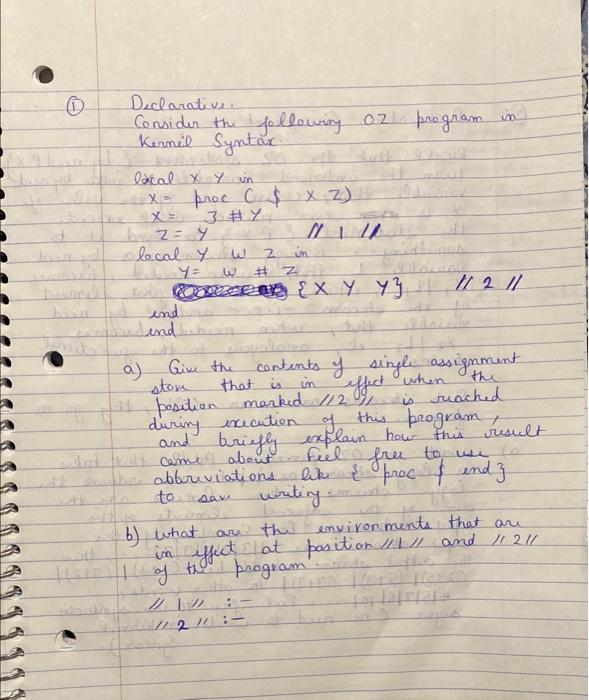 ① Declarative.
Consider the following OZ program in
Kernel Syntax.
local X Y in
X = proc ( $ X Z)
X = 3 # Y
Z = Y // 1 //
local Y W Z in
Y = W # Z
{X Y Y} // 2 //
end
end
a) Give the contents of single assignment
store that is in effect when the
position marked //2// is reached
during execution of this program,
and briefly explain how this result
came about. Feel free to use
abbreviations like { proc $ end }
to save writing.
b) what are the environments that are
in effect at position //1// and //2//
of the program.
// 1 // :-
// 2 // :-